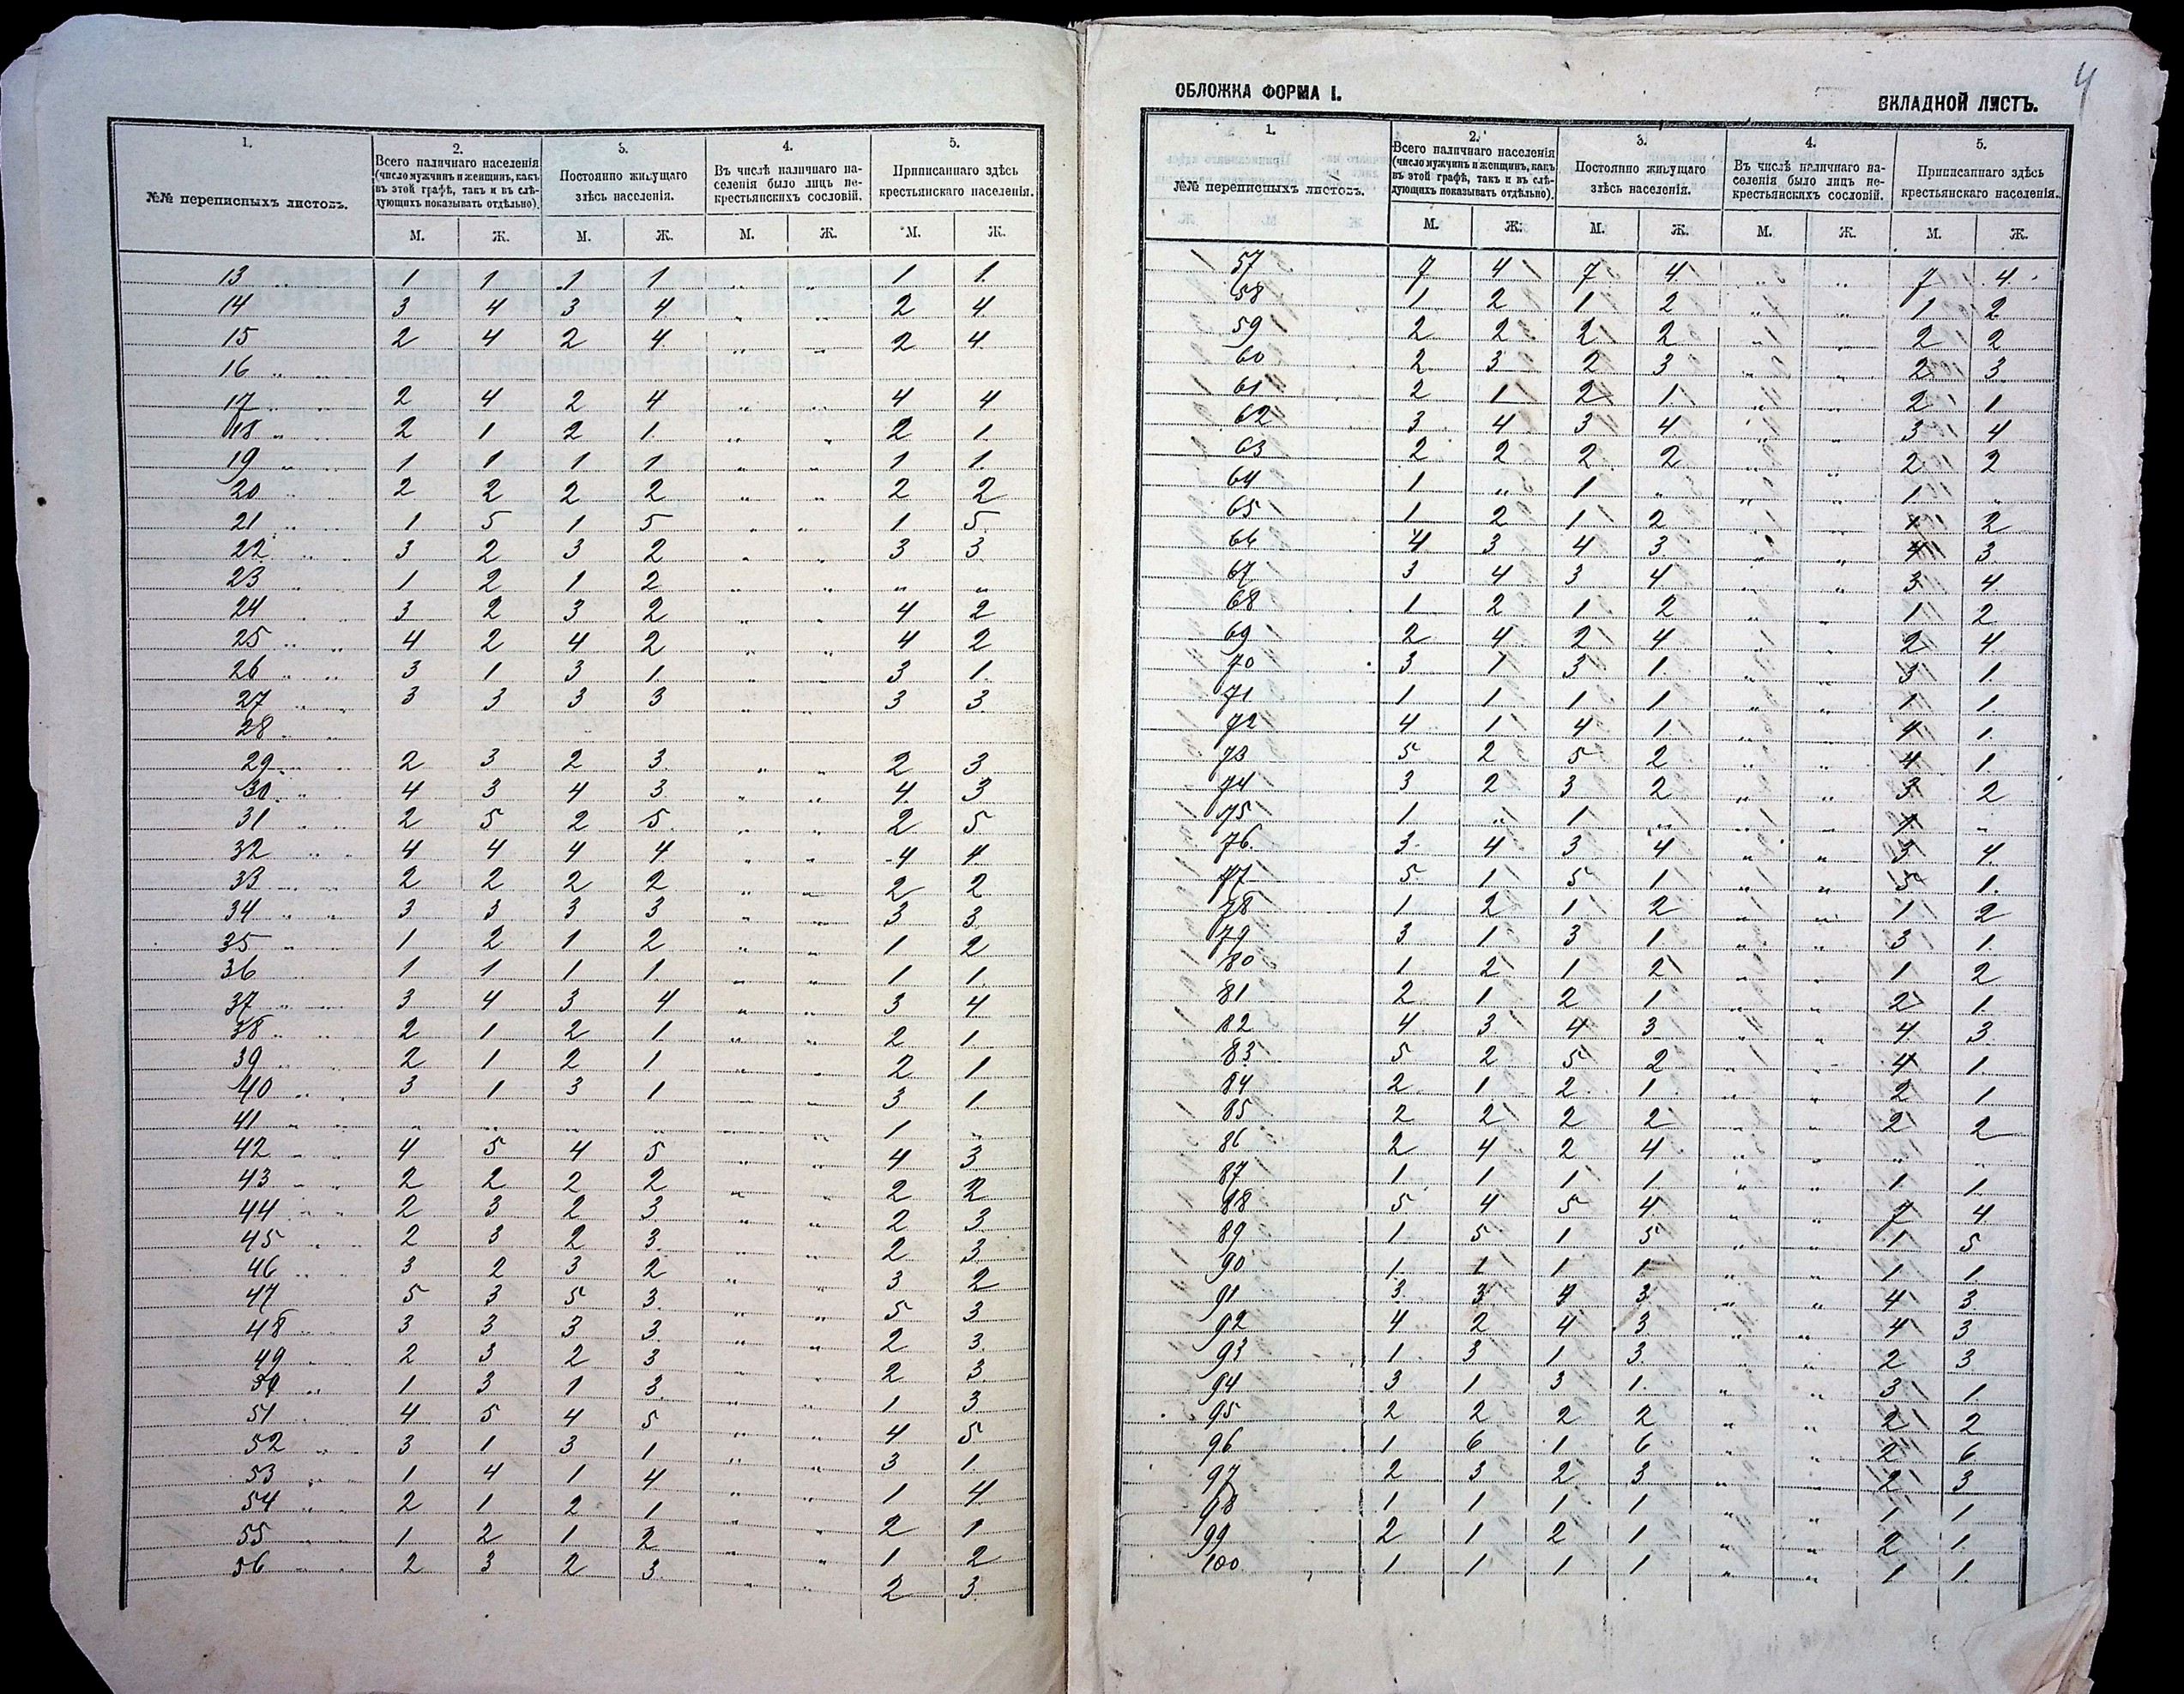 1. 2. 3. 4. 5.
№№ переписныхъ листовъ. Всего наличнаго населенія (число мужчинъ и женщинъ, какъ въ этой графѣ, такъ и въ слѣдующихъ показывать отдѣльно). Постоянно живущаго здѣсь населенія. Въ числѣ наличнаго населенія было лицъ некрестьянскихъ сословій. Приписаннаго здѣсь крестьянскаго населенія.
М. Ж. М. Ж. М. Ж. М. Ж.
13 „ 1 1 1 1 „ „ 1 1
14 3 4 3 4 „ „ 2 4
15 2 4 2 4 „ „ 2 4
16 „ „
17 „ 2 4 2 4 „ „ 4 4
18 „ 2 1 2 1 „ „ 2 1
19 „ „ 1 1 1 1 „ „ 1 1
20 „ 2 2 2 2 „ „ 2 2
21 „ 1 5 1 5 „ „ 1 5
22 „ „ 3 2 3 2 „ „ 3 3
23 „ 1 2 1 2 „ „ „ „
24 3 2 3 2 „ „ 4 2
25 „ „ 4 2 4 2 „ „ 4 2
26 „ „ 3 1 3 1 „ „ 3 1
27 „ „ 3 3 3 3 „ „ 3 3
28 „ „
29 „ 2 3 2 3 „ „ 2 3
30 „ 4 3 4 3 „ „ 4 3
31 „ „ 2 5 2 5 „ „ 2 5
32 „ „ 4 4 4 4 „ „ 4 4
33 „ „ 2 2 2 2 „ „ 2 2
34 „ „ 3 3 3 3 „ „ 3 3
35 „ „ 1 2 1 2 „ „ 1 2
36 1 1 1 1 „ „ 1 1
37 „ „ 3 4 3 4 „ „ 3 4
38 „ „ 2 1 2 1 „ „ 2 1
39 „ 2 1 2 1 „ „ 2 1
40 „ „ 3 1 3 1 „ „ 3 1
41 „ „ „ „ „ „ „ „ 1 „
42 „ „ 4 5 4 5 „ „ 4 3
43 „ „ 2 2 2 2 „ „ 2 2
44 „ „ 2 3 2 3 „ „ 2 3
45 „ 2 3 2 3 „ „ 2 3
46 „ 3 2 3 2 „ „ 3 2
47 5 3 5 3 „ „ 5 3
48 „ 3 3 3 3 „ „ 2 3
49 „ 2 3 2 3 „ „ 2 3
50 „ 1 3 1 3 „ „ 1 3
51 4 5 4 5 „ „ 4 5
52 „ 3 1 3 1 „ „ 3 1
53 „ 1 4 1 4 „ „ 1 4
54 „ 2 1 2 1 „ „ 2 1
55 1 2 1 2 „ „ 1 2
56 „ 2 3 2 3 „ „ 2 3
4
ОБЛОЖКА ФОРМА I. ВКЛАДНОЙ ЛИСТЪ.
1. 2. 3. 4. 5.
№№ переписныхъ листовъ. Всего наличнаго населенія (число мужчинъ и женщинъ, какъ въ этой графѣ, такъ и въ слѣдующихъ показывать отдѣльно). Постоянно живущаго здѣсь населенія. Въ числѣ наличнаго населенія было лицъ некрестьянскихъ сословій. Приписаннаго здѣсь крестьянскаго населенія.
М. Ж. М. Ж. М. Ж. М. Ж.
57 7 4 7 4 „ „ 7 4
58 1 2 1 2 „ „ 1 2
59 2 2 2 2 „ „ 2 2
60 2 3 2 3 „ „ 2 3
61 2 1 2 1 „ „ 2 1
62 3 4 3 4 „ „ 3 4
63 2 2 2 2 „ „ 2 2
64 1 „ 1 „ „ „ 1 „
65 1 2 1 2 „ „ 1 2
66 4 3 4 3 „ „ 4 3
67 3 4 3 4 „ „ 3 4
68 1 2 1 2 „ „ 1 2
69 2 4 2 4 „ „ 2 4
70 3 1 3 1 „ „ 3 1
71 1 1 1 1 „ „ 1 1
72 4 1 4 1 „ „ 4 1
73 5 2 5 2 „ „ 4 1
74 3 2 3 2 „ „ 3 2
75 1 „ 1 „ „ „ 1 „
76 3 4 3 4 „ „ 3 4
77 5 1 5 1 „ „ 5 1
78 1 2 1 2 „ „ 1 2
79 3 1 3 1 „ „ 3 1
80 1 2 1 2 „ „ 1 2
81 2 1 2 1 „ „ 2 1
82 4 3 4 3 „ „ 4 3
83 5 2 5 2 „ „ 4 1
84 2 1 2 1 „ „ 2 1
85 2 2 2 2 „ „ 2 2
86 2 4 2 4 „ „ „ „
87 1 1 1 1 „ „ 1 1
88 5 4 5 4 „ „ 7 4
89 1 5 1 5 „ „ 1 5
90 1 1 1 1 „ „ 1 1
91 3 3 4 3 „ „ 4 3
92 4 2 4 3 „ „ 4 3
93 1 3 1 3 „ „ 2 3
94 3 1 3 1 „ „ 3 1
95 2 2 2 2 „ „ 2 2
96 1 6 1 6 „ „ 2 6
97 2 3 2 3 „ „ 2 3
98 1 1 1 1 „ „ 1 1
99 2 1 2 1 „ „ 2 1
100 1 1 1 1 „ „ 1 1